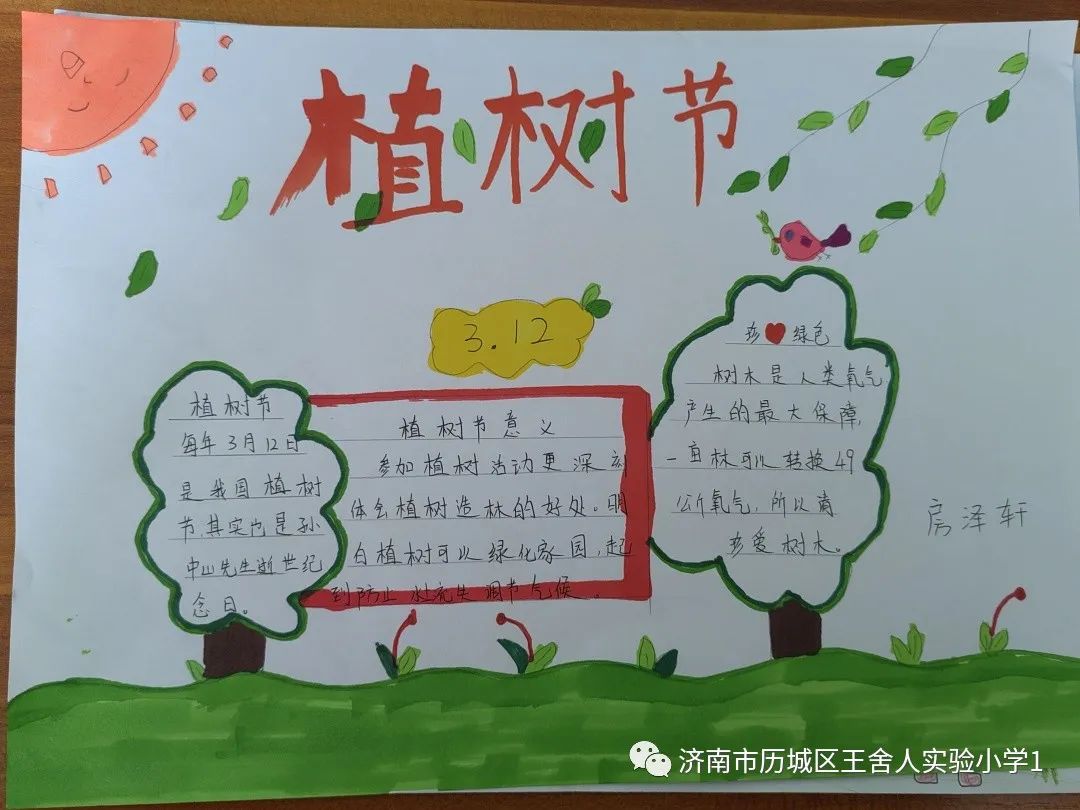 植树节
3.12
植树节
每年3月12日
是我国植树
节,其实也是孙
中山先生逝世纪
念日。
植树节意义
参加植树活动更深刻
体会植树造林的好处。明
白植树可以绿化家园,起
到防止水土流失调节气候。
珍❤绿色
树木是人类氧气
产生的最大保障,
一亩林可以转换49
公斤氧气,所以请
珍爱树木。
房泽轩
济南市历城区王舍人实验小学1